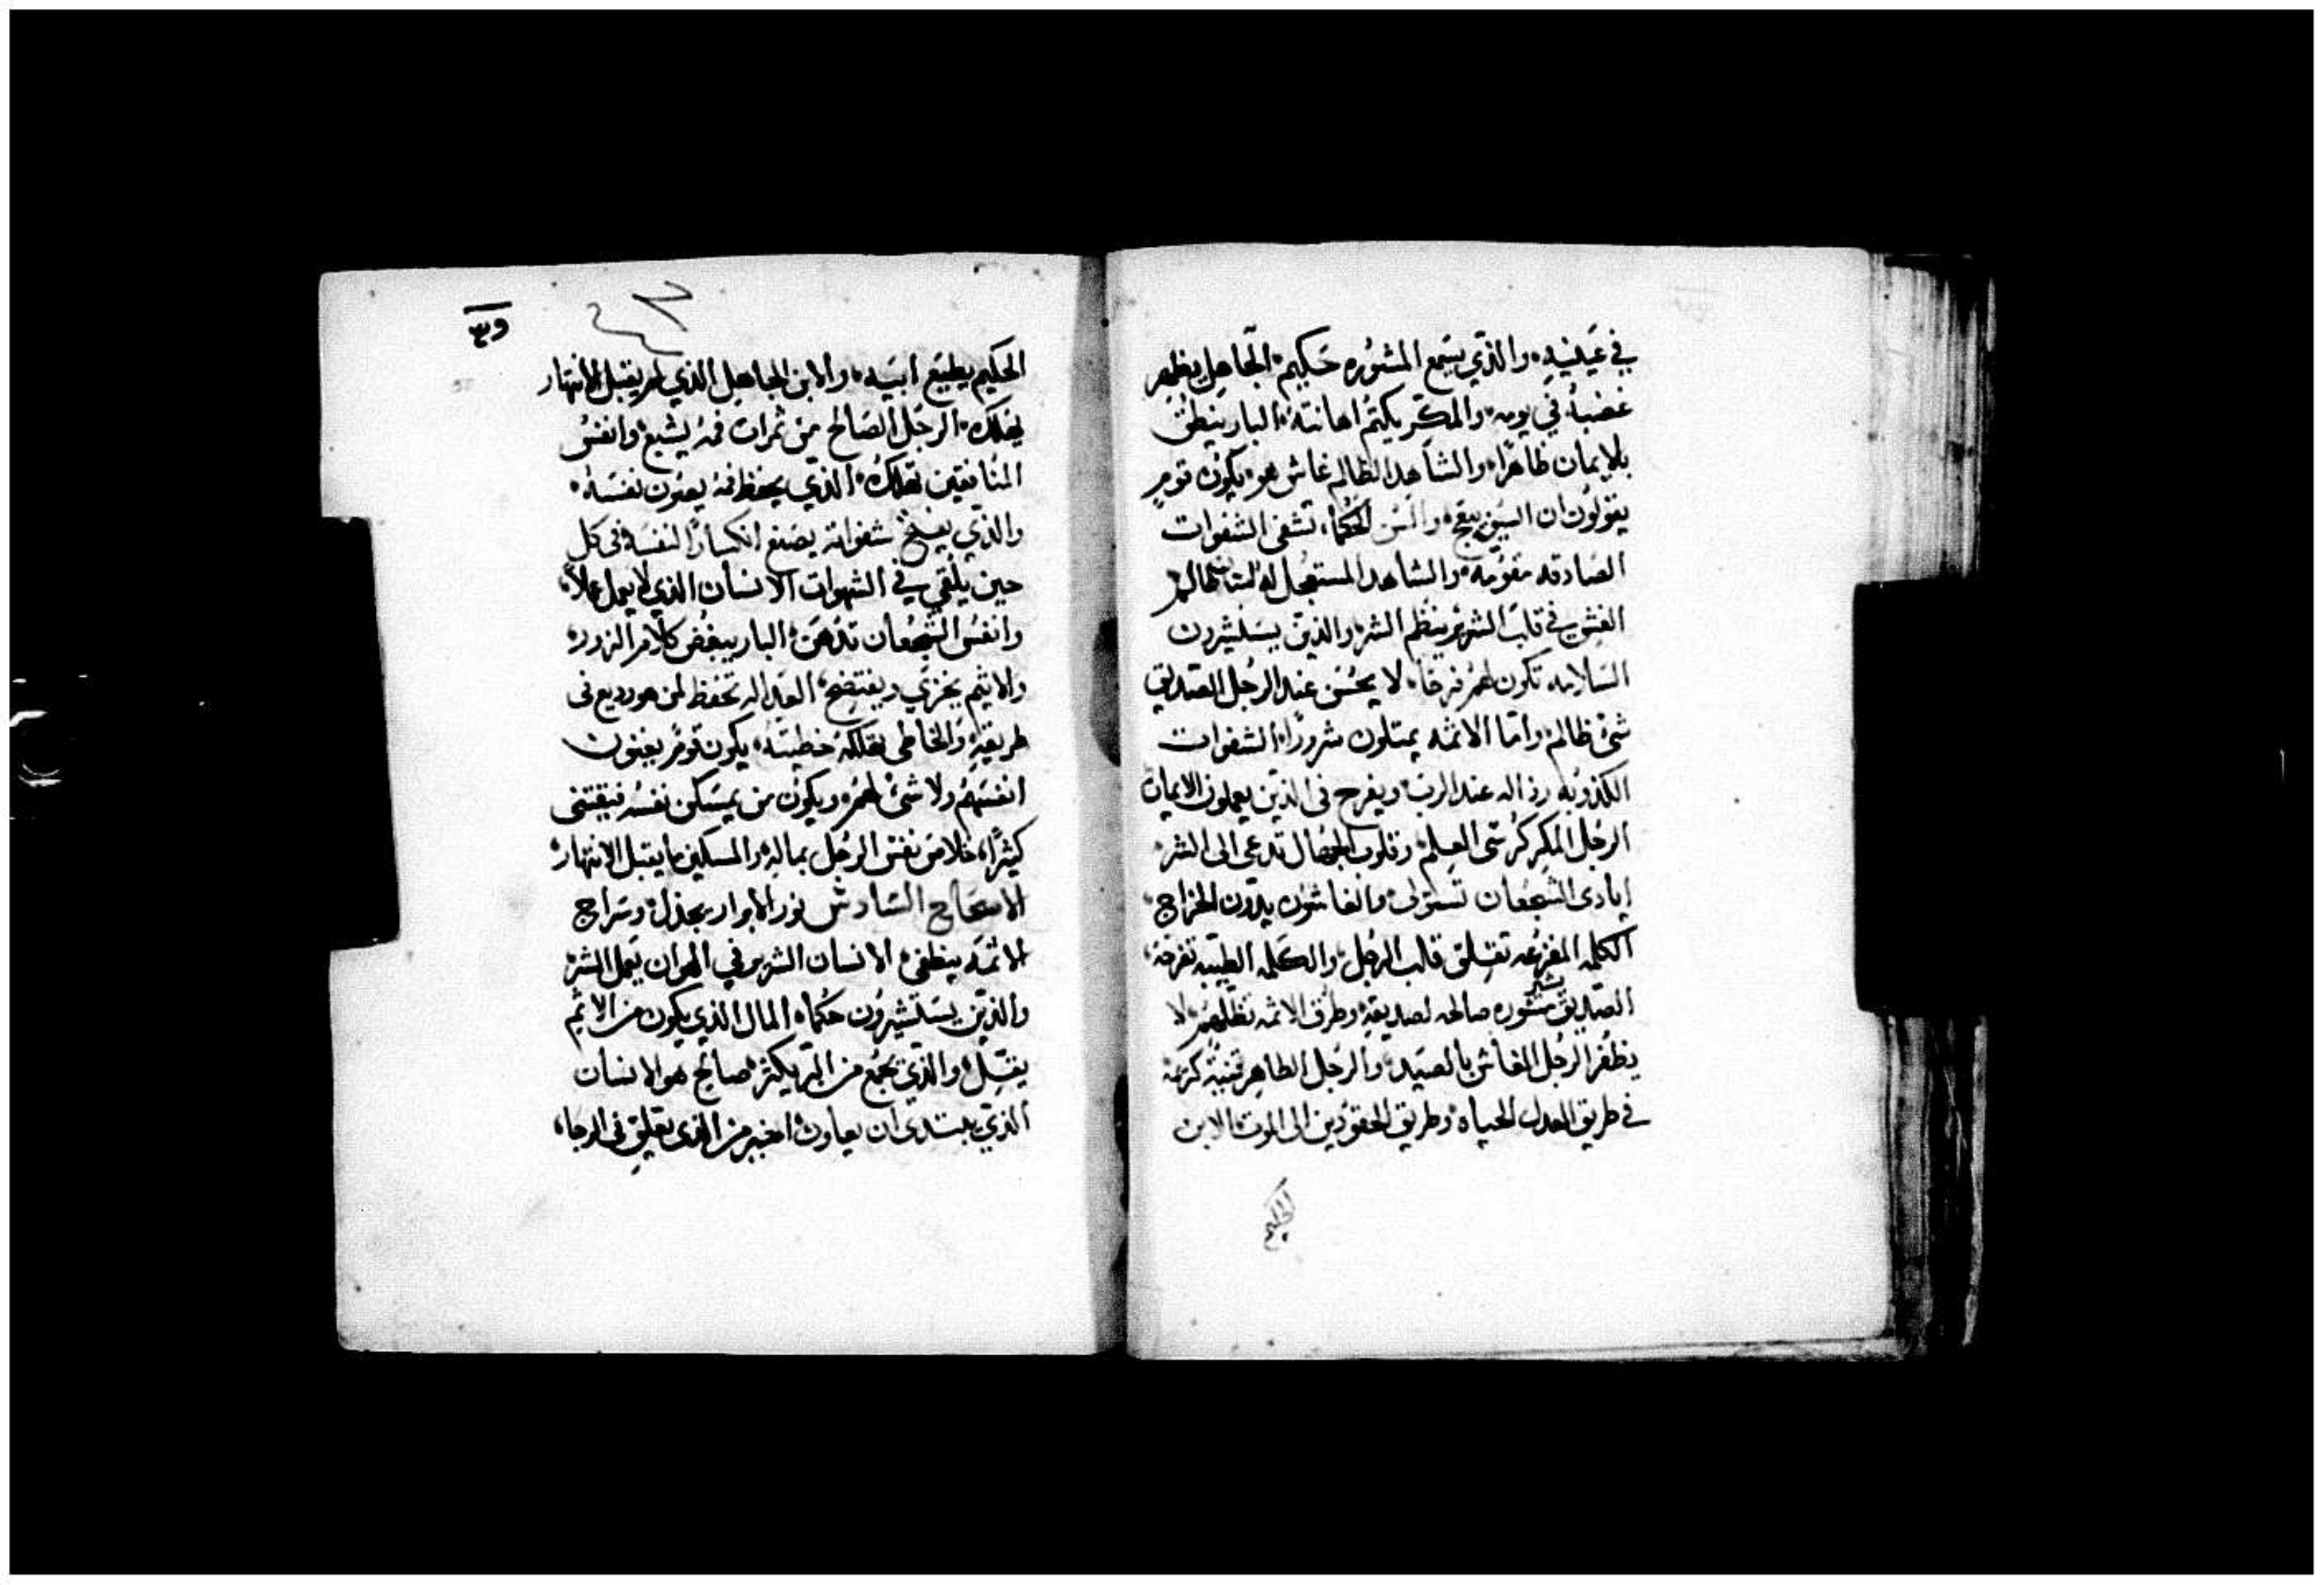 في عينيه، والذي يسمع المشوره حكيم، الجاهل يظهر
غضبه في يومه، والمكر يكتم اهانته، البار ينطق
بالايمان ظاهرًا، والشاهد الظالم غاش هو، يكون قوم
يقولون ان السيف يبعج، والسن الحكماء تشفى الشفوات
الصادقه مقومه، والشاهد المستعجل له لسان ظالم
الغش في قلب الشرير ينظم الشر، والذين يستشيرون
السلامه تكون لهم فرحًا، لا يحسن عند الرجل الصديق
شئ ظالم، واما الاثمه يمتلون شرورًا، الشفوات
الكذوبه رذاله عند الرب، ويفرح في الذين يعملون الايمان
الرجل المكر كرسى العلم، وقلوب الجهال تدعى الى الشر،
ايادى الشجعان تستولى، والغاشون يردون الخراج،
الكلمه المفزعه تقلق قلب الرجل، والكلمه الطيبه تفرحه،
الصديق يشير مشوره صالحه لصديقه، وطرق الاثمه تظلهم، لا
يظفر الرجل الغاش بالصيد، والرجل الطاهر قنيته كريمه
في طريق العدل الحياه، وطريق الحقودين الى الموت، الابن
الحكيم
وع
الحكيم يطيع ابيه، والابن الجاهل الذي لم يقبل الانتهار
يهلك، الرجل الصالح من ثمرات فمه يشبع، وانفس
المنافقين تهلك، الذي يحفظ فمه يصون نفسه،
والذي يفتح شفواته يصنع انكسارًا لنفسه، في كل
حين يلقي في الشهوات الانسان الذي لا يعمل عملاً،
وانفس الشجعان تدهن، البار يبغض كلام الزور،
والاثيم يخزي ويفتضح، العداله تحفظ لمن هو وديع فى
طريقه، والخاطى تهلكه خطيته، يكون قوم يغنون
انفسهم ولا شئ لهم، ويكون من يمسكن نفسه فيقتنى
كثيرًا، خلاص نفس الرجل بماله، والمسكين ما يقبل الانتهار،
الاصحاح السادس نور الابرار بجذل، وسراج
الاثمه ينطفئ، الانسان الشرير في الهوان يعمل الشر،
والذين يستشيرون حكماء، المال الذي يكون من الاثم
يقل، والذي يجمع من البر يكثر، صالح هو الانسان
الذي يبتدى ان يعاون، اخير من الذى يعلق فى الرجا،